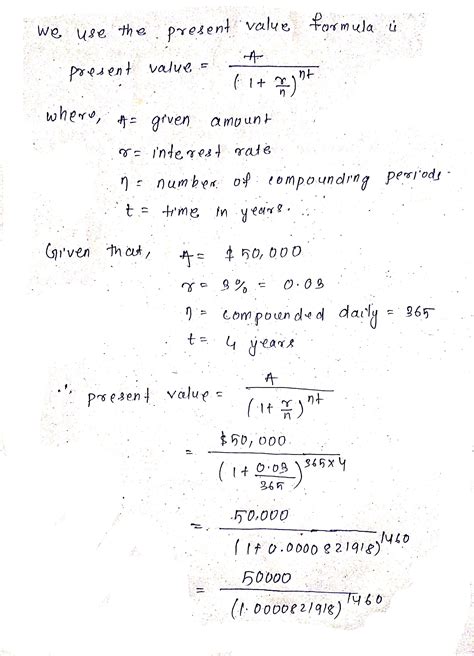 We use the present value formula is
present value = A / (1 + r/n)^nt
where, A = given amount
r = interest rate
n = number of compounding periods.
t = time in years.
Given that, A = $50,000
r = 3% = 0.03
n = compounded daily = 365
t = 4 years
∴ present value = A / (1 + r/n)^nt
= $50,000 / (1 + 0.03/365)^365×4
= 50,000 / (1+0.0000821918)^1460
= 50000 / (1.0000821918)^1460